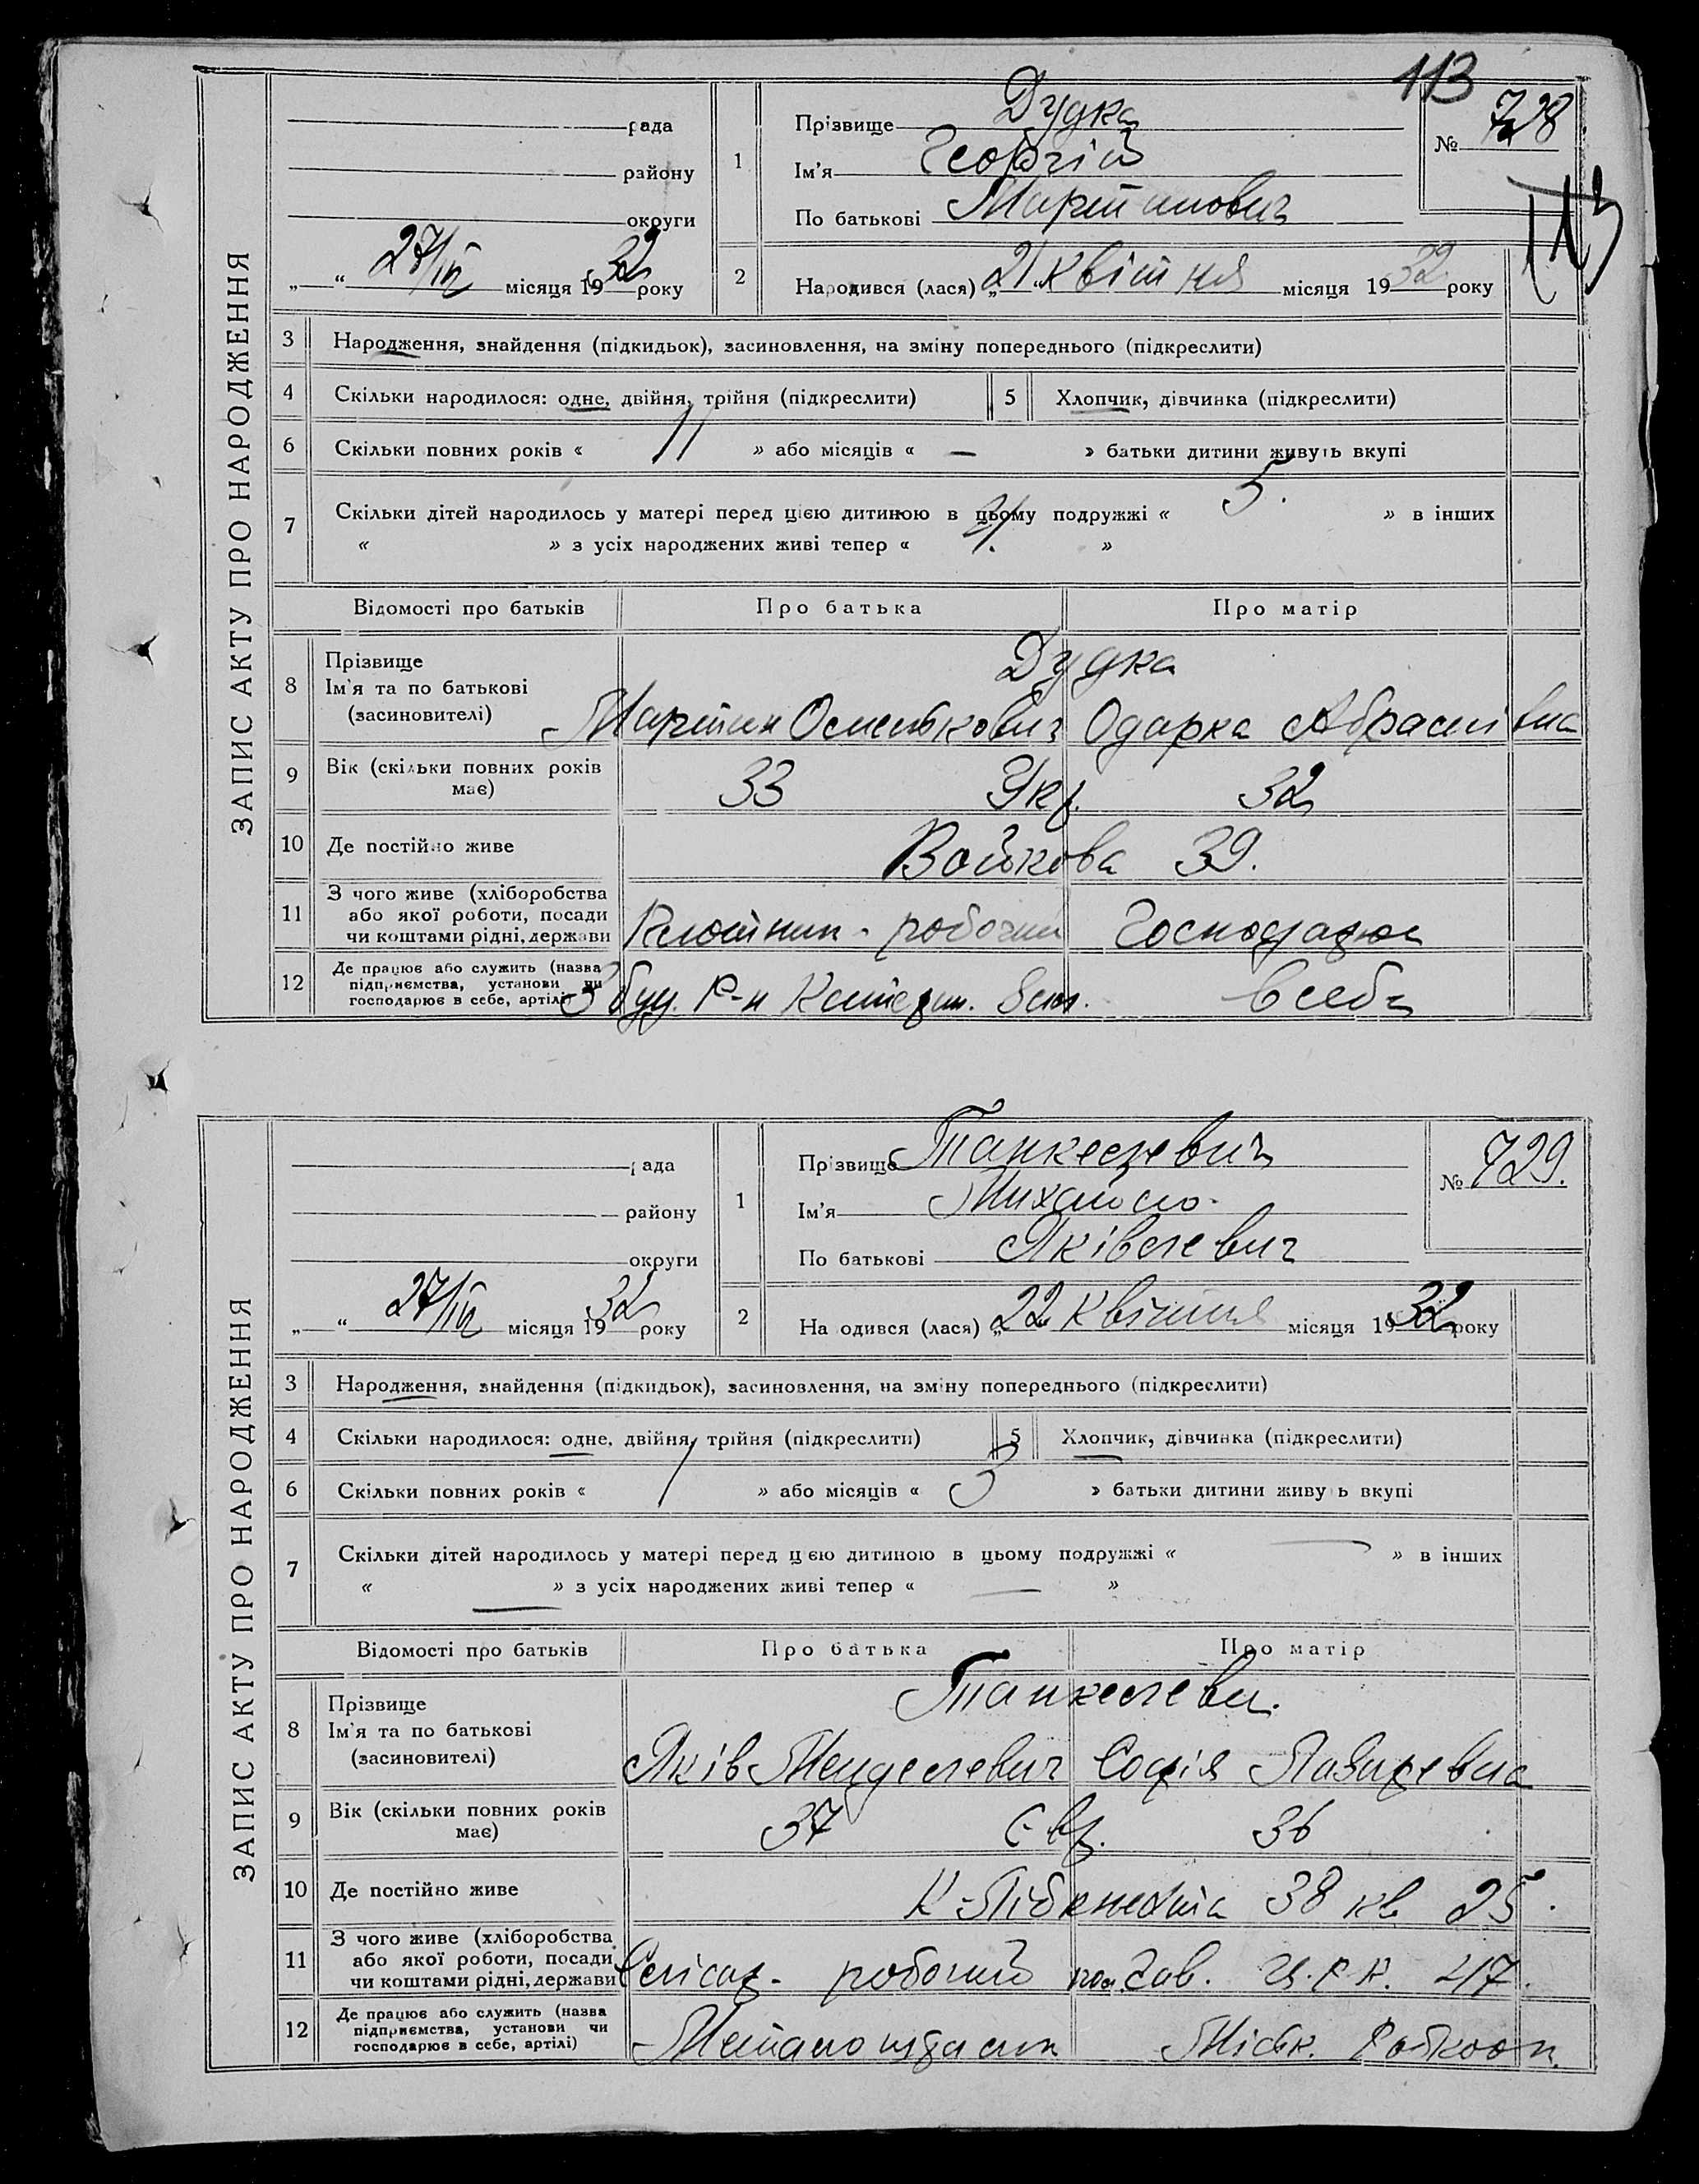 113
ЗАПИС АКТУ ПРО НАРОДЖЕННЯ
рада
району
округи
„ “ 27/IV місяця 1932 року
1
Прізвище Дудка
Ім'я Георгій
По батькові Мартинович
№ 728
113
2
Народився (лася) „21“ квітня місяця 1932 року
3 Народження, знайдення (підкидьок), засиновлення, на зміну попереднього (підкреслити)
4 Скільки народилося: одне, двійня, трійня (підкреслити) 5 Хлопчик, дівчинка (підкреслити)
6 Скільки повних років « 11 » або місяців « — » батьки дитини живуть вкупі
7 Скільки дітей народилось у матері перед цією дитиною в цьому подружжі « 5. » в інших
« » з усіх народжених живі тепер « »
Відомості про батьків Про батька Про матір
8 Прізвище Дудка
Ім'я та по батькові
(засиновителі) Мартин Одарка
9 Вік (скільки повних років має) 33 Укр. 32
10 Де постійно живе Войкова 39.
11 З чого живе (хліборобства
або якої роботи, посади
чи коштами рідні, держави робочий
12 Де працює або служить (назва
підприємства, установи чи
господарює в себе, артілі) 3 буд. Р-н в себе
ЗАПИС АКТУ ПРО НАРОДЖЕННЯ
рада
району
округи
„ “ 27/IV місяця 1932 року
1
Прізвище
Ім'я Михайло.
По батькові Яківлевич
№ 729.
2
На одився (лася) „22 квітня місяця 1932 року
3 Народження, знайдення (підкидьок), засиновлення, на зміну попереднього (підкреслити)
4 Скільки народилося: одне, двійня, трійня (підкреслити) 5 Хлопчик, дівчинка (підкреслити)
6 Скільки повних років « 1 » або місяців « 3 » батьки дитини живу ь вкупі
7 Скільки дітей народилось у матері перед цією дитиною в цьому подружжі « — » в інших
« — » з усіх народжених живі тепер « — »
Відомості про батьків Про батька Про матір
8 Прізвище
Ім'я та по батькові
(засиновителі) Яків Менделевич Софія Лазаревна
9 Вік (скільки повних років має) 37 Євр. 36
10 Де постійно живе К-Лібкнехта 38 кв 25.
11 З чого живе (хліборобства
або якої роботи, посади
чи коштами рідні, держави Слюсар - робочий пом. зав. 47.
12 Де працює або служить (назва
підприємства, установи чи
господарює в себе, артілі) Міськ. Робкооп.